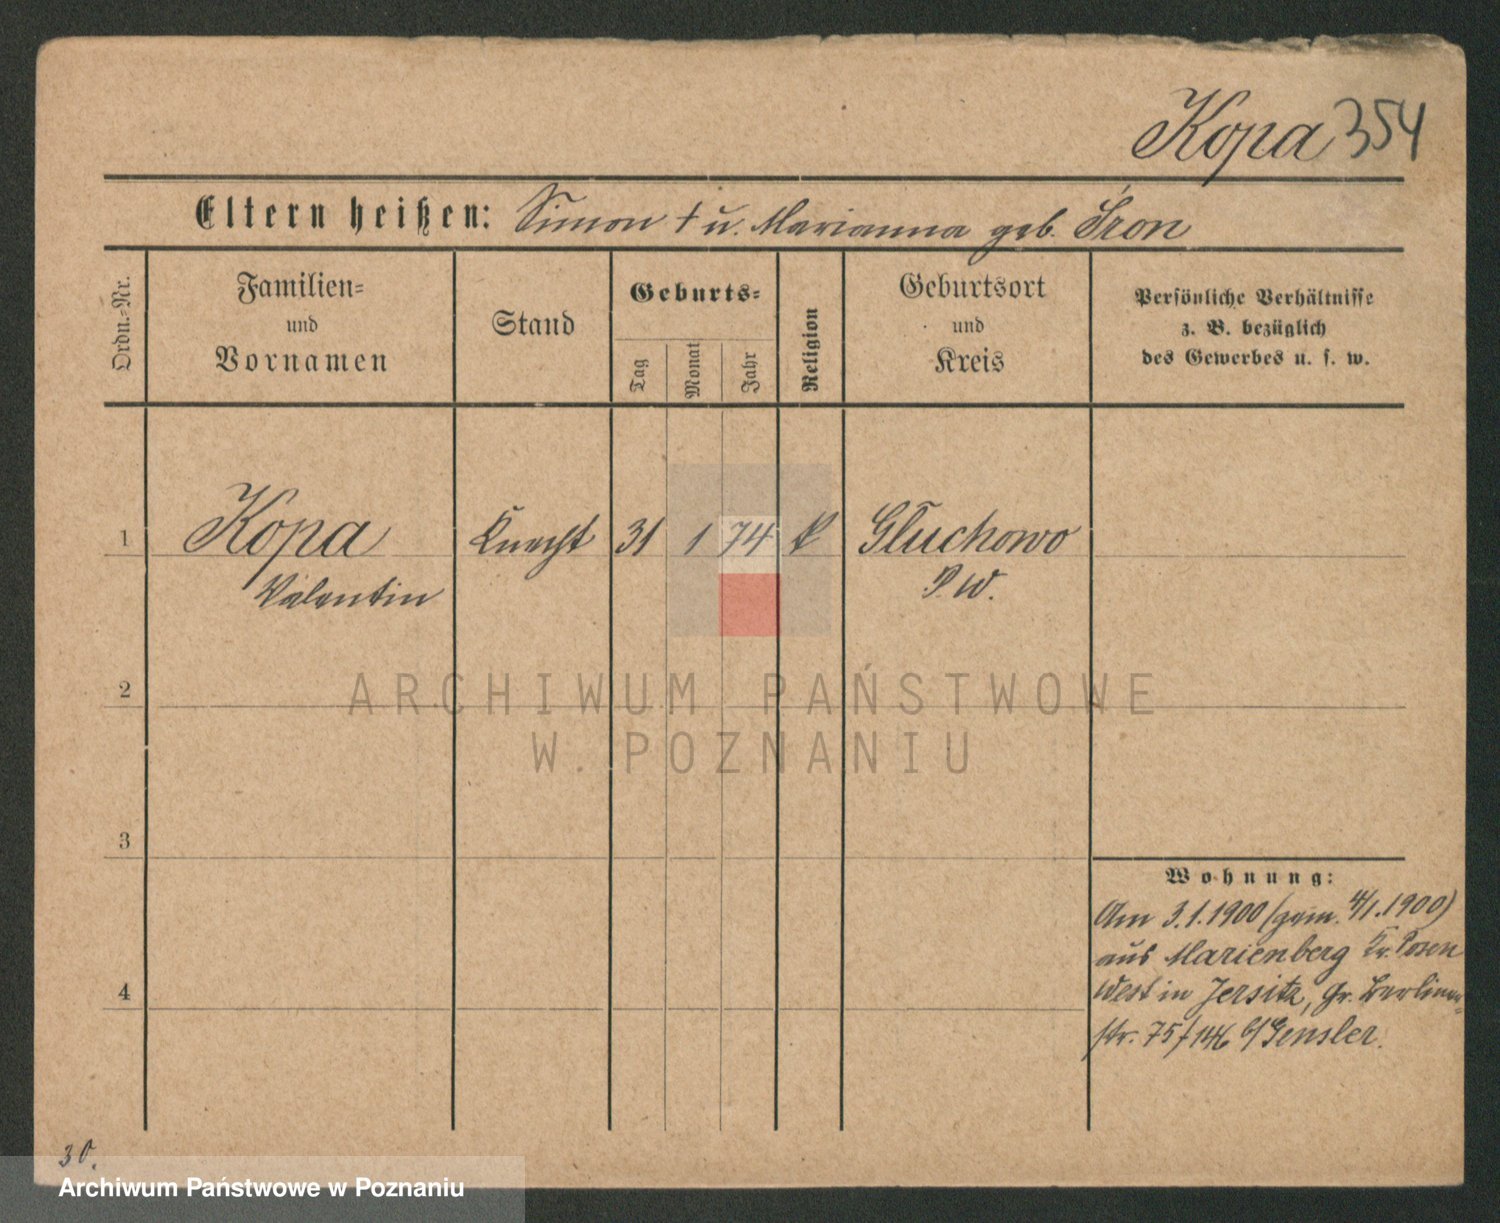 Kopa 354
Eltern heißen: Simon † u. Marianna geb. Śron
Ordn.-Nr.
Familien-
und
Vornamen
Stand
Geburts-
Tag
Monat
Jahr
Religion
Geburtsort
und
Kreis
Persönliche Verhältnisse
z. B. bezüglich
des Gewerbes u. s. w.
1 Kopa Knecht 31 1 74 k Głuchowo
Valentin P. W.
2
ARCHIWUM PAŃSTWOWE
W. POZNANIU
3
Wohnung:
Am 3.1.1900 (gem. 4/1.1900)
aus Marienberg Kr. Posen
West in Jersitz, Gr. Berliner-
str. 75/ b/Gensler.
4
30.
Archiwum Państwowe w Poznaniu